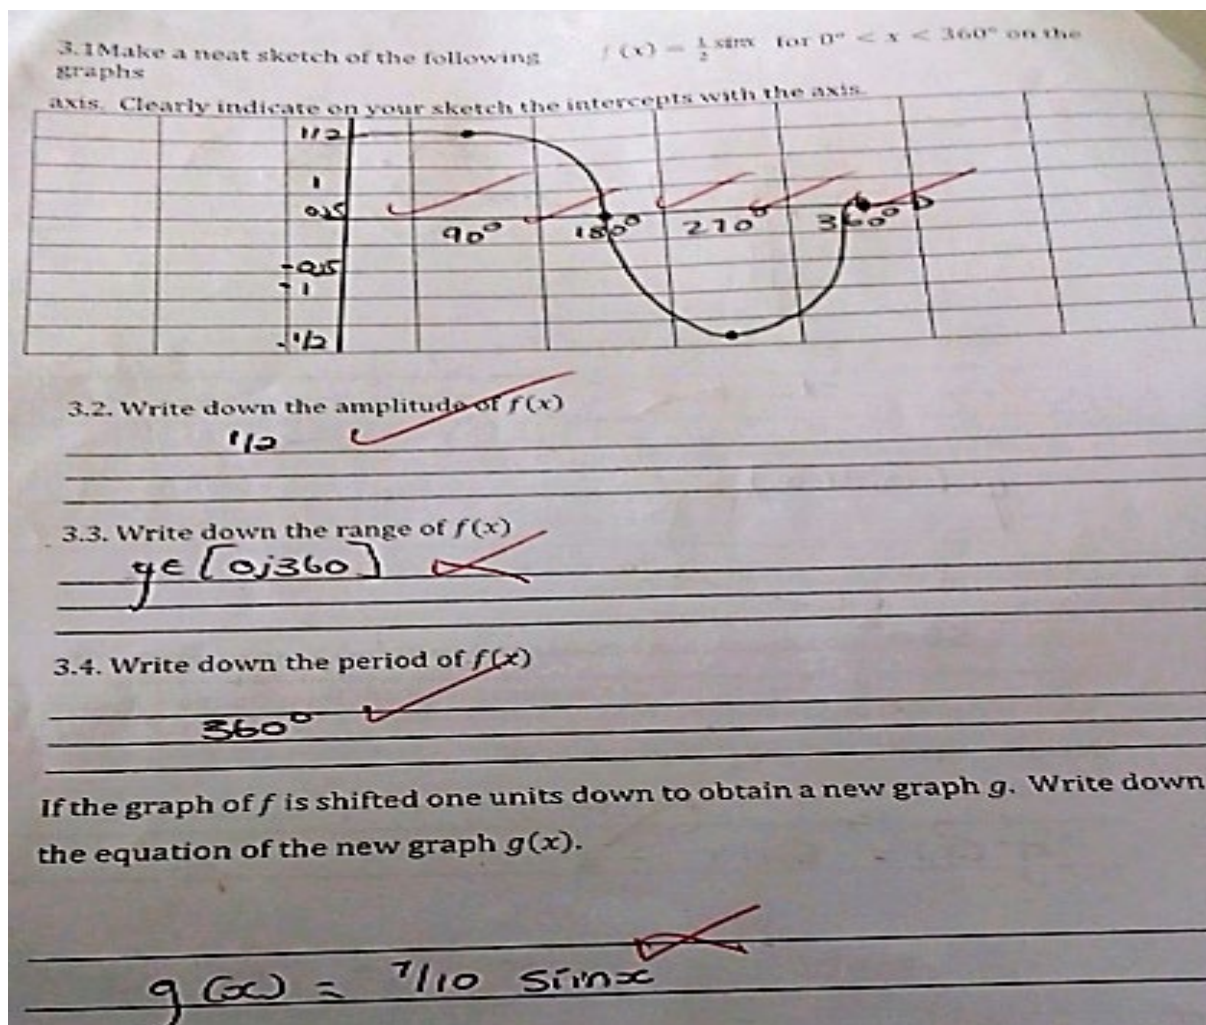 3.1Make a neat sketch of the following f(x) = 1/2 sinx for 0° < x < 360° on the
graphs
axis. Clearly indicate on your sketch the intercepts with the axis.
1/2
1
0,5
90° 180° 270° 360°
-0,5
-1
-1/2
3.2. Write down the amplitude of f(x)
1/2
3.3. Write down the range of f(x)
y∈[0;360]
3.4. Write down the period of f(x)
360°
If the graph of f is shifted one units down to obtain a new graph g. Write down
the equation of the new graph g(x).
g(x) = 7/10 sinx